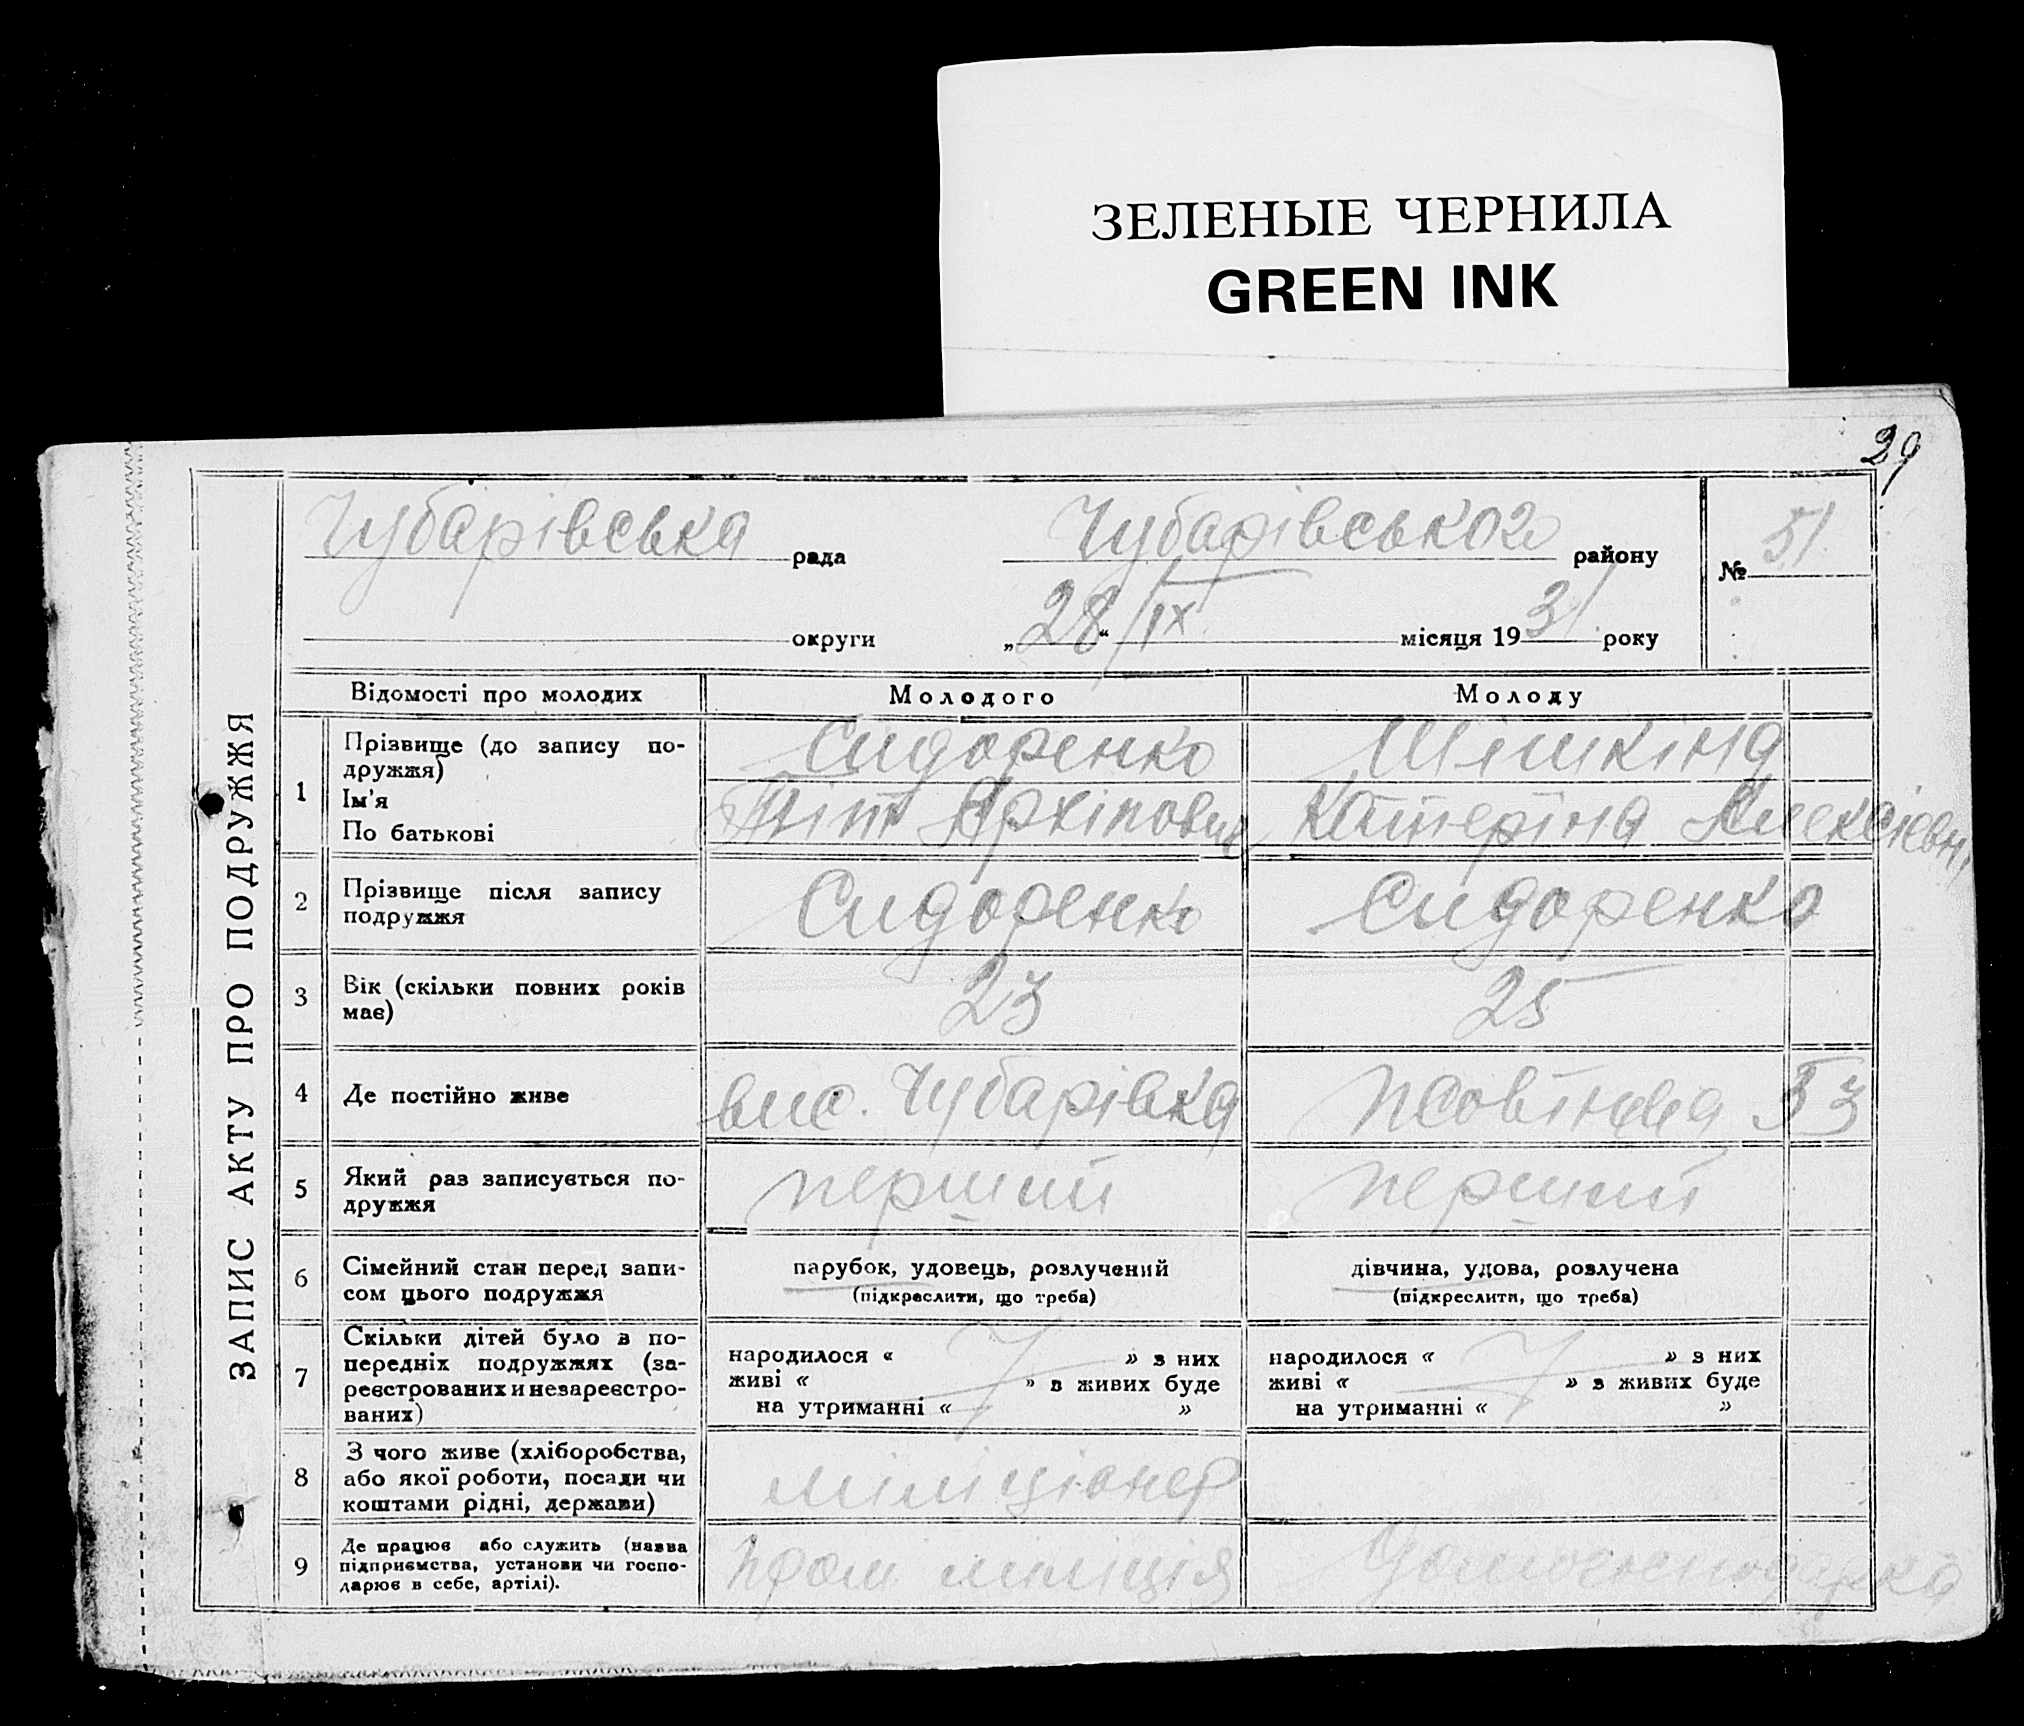 ЗЕЛЕНЫЕ ЧЕРНИЛА
GREEN INK
29
ЗАПИС АКТУ ПРО ПОДРУЖЖЯ
Чубарівська рада Чубарівського району № 51
округи „28“ /IX місяця 1931 року
Відомості про молодих Молодого Молоду
1 Прізвище (до запису по-
дружжя) Сидоренко Шішкіна
Ім'я
По батькові Тіт Архіпович Катеріна Алексієвн
2 Прізвище після запису
подружжя Сидоренко Сидоренко
3 Вік (скільки повних років
має) 23 25
4 Де постійно живе вис. Чубарівка 53
5 Який раз записується по-
дружжя перший перший
6 Сімейний стан перед запи-
сом цього подружжя
парубок, удовець, розлучений
(підкреслити, що треба)
дівчина, удова, розлучена
(підкреслити, що треба)
7 Скільки дітей було в по-
передніх подружжях (за-
реєстрованих и незареєстро-
ваних)
народилося « » з них
живі « » з живих буде
на утриманні « »
народилося « » з них
живі « » з живих буде
на утриманні « »
8 З чого живе (хліборобства,
або якої роботи, посади чи
коштами рідні, держави) міліціонер
9 Де працює або служить (назва
підприємства, установи чи госпо-
дарює в себе, артілі). пром міліція домогосподарка